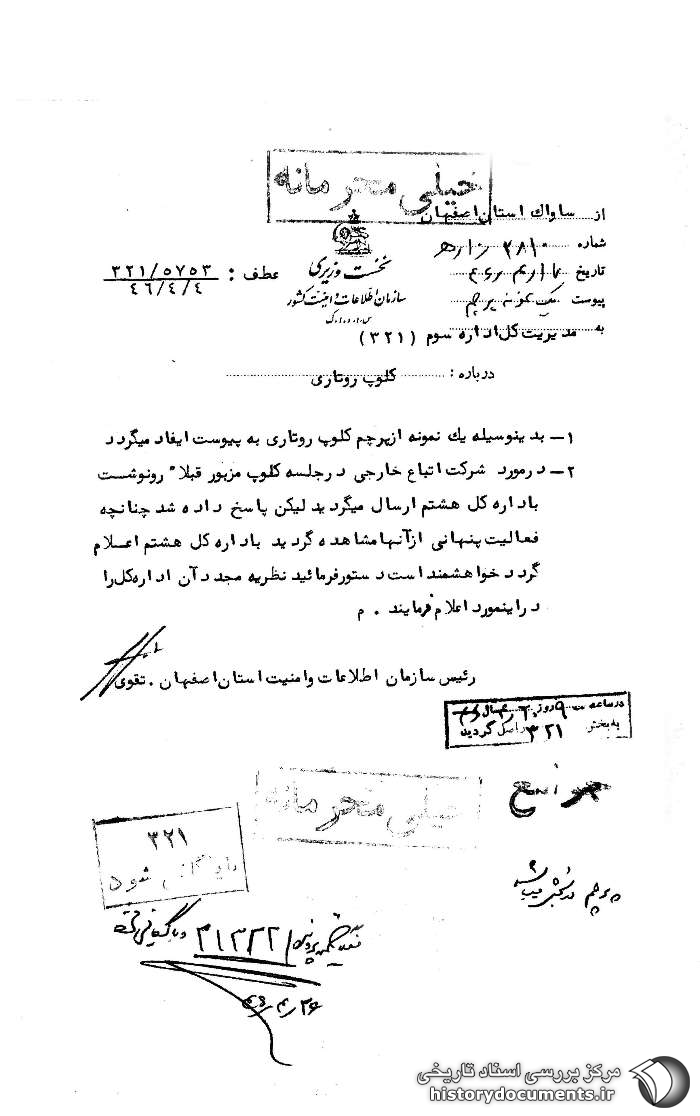 خیلی محرمانه
از ساواك استان اصفهان
شماره ۲۸۱۰
تاریخ
پیوست یک نمونه پرچم
نخست وزیری
سازمان اطلاعات و امنیت کشور
س.ا.و.ا.ک
عطف : ۳۲۱/۵۷۵۳
۴۶/۴/۴
به مدیریت کل اداره سوم (۳۲۱)
درباره : کلوپ روتاری
۱- بدینوسیله یك نمونه ازپرچم کلوپ روتاری به پیوست ایفاد میگردد
۲- درمورد شرکت اتباع خارجی درجلسه کلوپ مزبور قبلا" رونوشت
باداره کل هشتم ارسال میگردید لیکن پاسخ داده شد چنانچه
فعالیت پنهانی ازآنها مشاهده گردید باداره کل هشتم اعلام
گردد خواهشمند است دستورفرمائید نظریه مجدد آن اداره کل را
دراینمورد اعلام فرمایند . م
رئیس سازمان اطلاعات وامنیت استان اصفهان . تقوی
در ساعت ۹ روز
به بخش ۳۲۱ واصل گردید
خیلی محرمانه
۳۲۱
بایگانی شود
پرچم در بخش میباشد
۳۱۳۲۲
مرکز بررسی اسناد تاریخی
historydocuments.ir